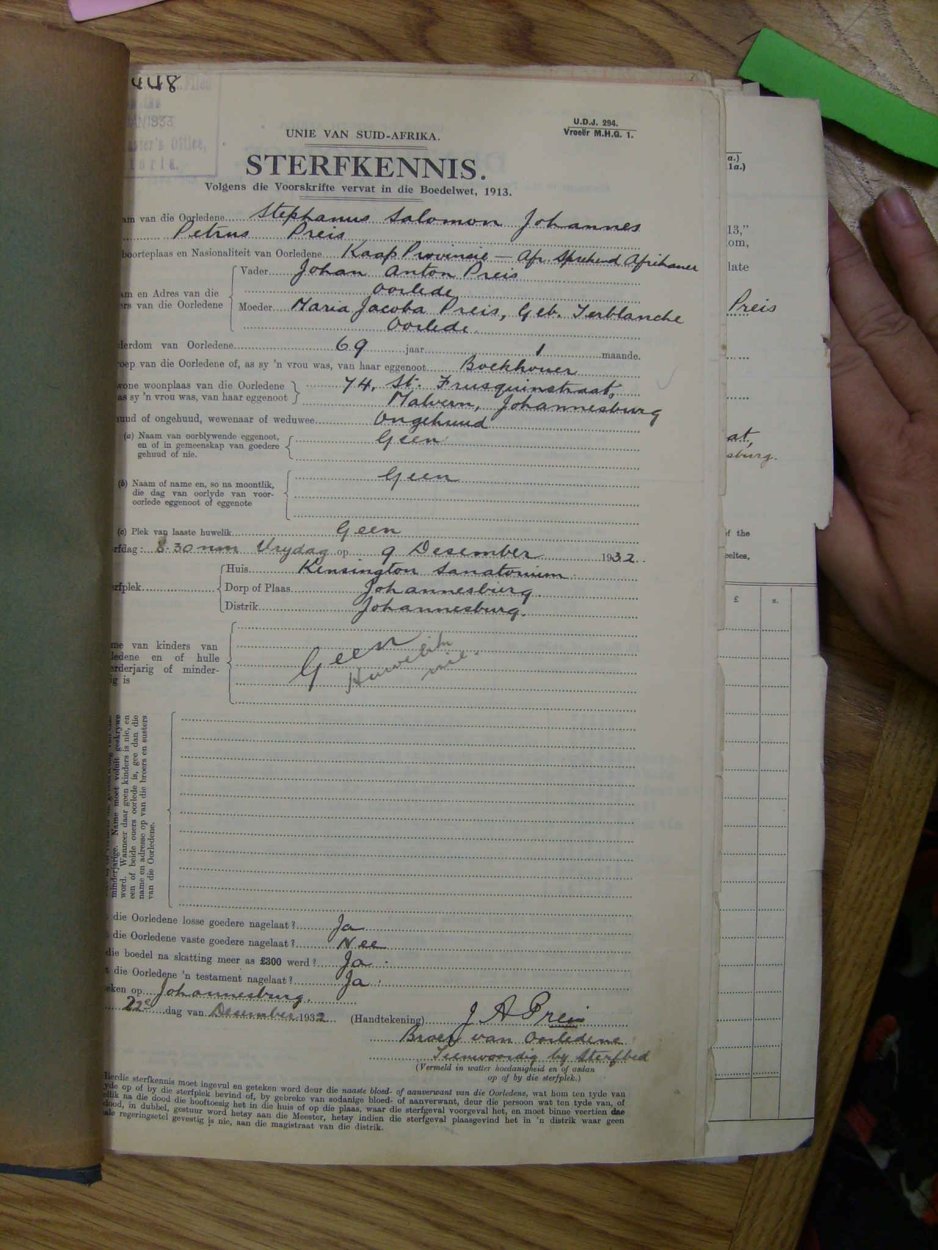 448
U.D.J. 294.
Vroeër M.H.G. 1.
UNIE VAN SUID-AFRIKA.
STERFKENNIS.
Volgens die Voorskrifte vervat in die Boedelwet, 1913.
am van die Oorledene Stephanus Salomon Johannes
Petrus Preis
boorteplaas en Nasionaliteit van Oorledene Kaap Provinsie — Afr. Sprekend Afrikaner
Vader Johan Anton Preis
oorlede
am en Adres van die
rs van die Oorledene
Moeder Maria Jacoba Preis, Geb. Terblanche
Oorlede.
derdom van Oorledene 69 jaar 1 maande.
roep van die Oorledene of, as sy 'n vrou was, van haar eggenoot Boekhouer
wone woonplaas van die Oorledene
as sy 'n vrou was, van haar eggenoot
74, St. Frusquinstraat,
Malvern, Johannesburg
uud of ongehuud, wewenaar of weduwee Ongehuud
(a) Naam van oorblywende eggenoot,
en of in gemeenskap van goedere
gehuud of nie.
Geen
(b) Naam of name en, so na moontlik,
die dag van oorlyde van voor-
oorlede eggenoot of eggenote
Geen
(c) Plek van laaste huwelik Geen
rfdag: 8.30 nm Vrydag op 9 Desember 1932
Huis Kensington Sanatorium
erfplek Dorp of Plaas Johannesburg
Distrik Johannesburg.
me van kinders van
ledene en of hulle
erderjarig of minder-
ig is
Geen
minderjarige. Name moet voluit geskrywe
word. Wanneer daar geen kinders is nie, en
een of beide ouers oorlede is, gee dan die
name en adresse op van die broers en susters
van die Oorledene.
die Oorledene losse goedere nagelaat? Ja
die Oorledene vaste goedere nagelaat? Nee
die boedel na skatting meer as £300 werd? Ja
die Oorledene 'n testament nagelaat? Ja
eken op Johannesburg.
22e dag van Desember 1932 (Handtekening) J A Preis
Broer van Oorledene
Teenwoordig by Sterfbed
(Vermeld in watter hoedanigheid en of aldan
op of by die sterfplek.)
Hierdie sterfkennis moet ingevul en geteken word deur die naaste bloed- of aanverwant van die Oorledene, wat hom ten tyde van
yde op of by die sterfplek bevind of, by gebreke van sodanige bloed- of aanverwant, deur die persoon wat ten tyde van, of
llik na die dood die hooftoesig het in die huis of op die plaas, waar die sterfgeval voorgeval het, en moet binne veertien dae
dood, in dubbel, gestuur word hetsy aan die Meester, hetsy indien die sterfgeval plaasgevind het in 'n distrik waar geen
ale regeringsetel gevestig is nie, aan die magistraat van die distrik.
a.)
1a.)
13,"
om,
late
Preis
at,
sburg.
f the
eeltes,
£ s.